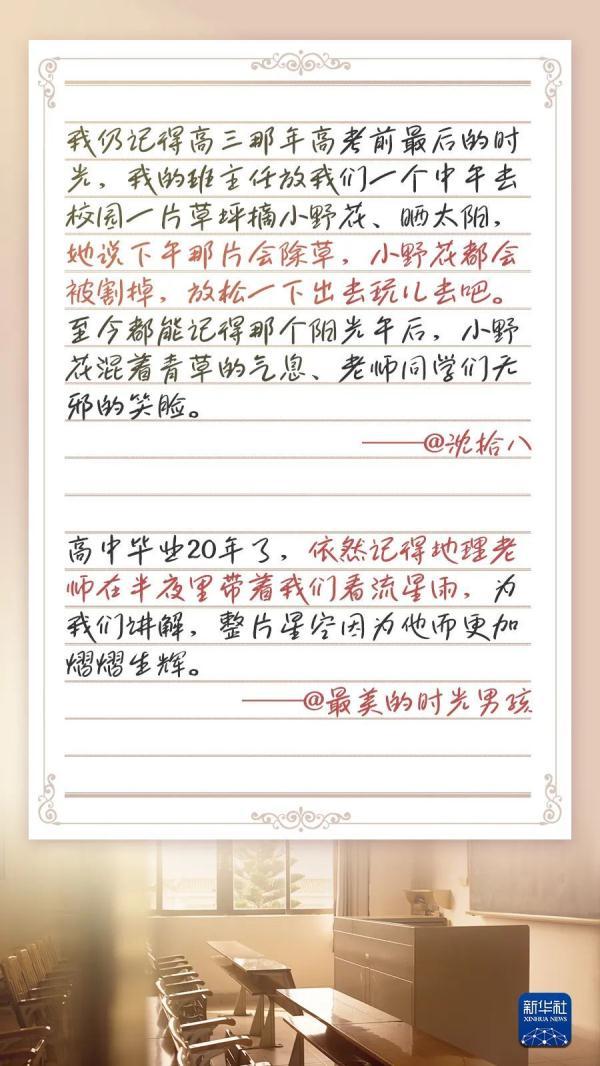 我仍记得高三那年高考前最后的时
光，我的班主任放我们一个中午去
校园一片草坪摘小野花、晒太阳，
她说下午那片会除草，小野花都会
被割掉，放松一下出去玩儿去吧。
至今都能记得那个阳光午后，小野
花混着青草的气息、老师同学们无
邪的笑脸。
——@沈拾八
高中毕业20年了，依然记得地理老
师在半夜里带着我们看流星雨，为
我们讲解，整片星空因为他而更加
熠熠生辉。
——@最美的时光男孩
新华社
XINHUA NEWS